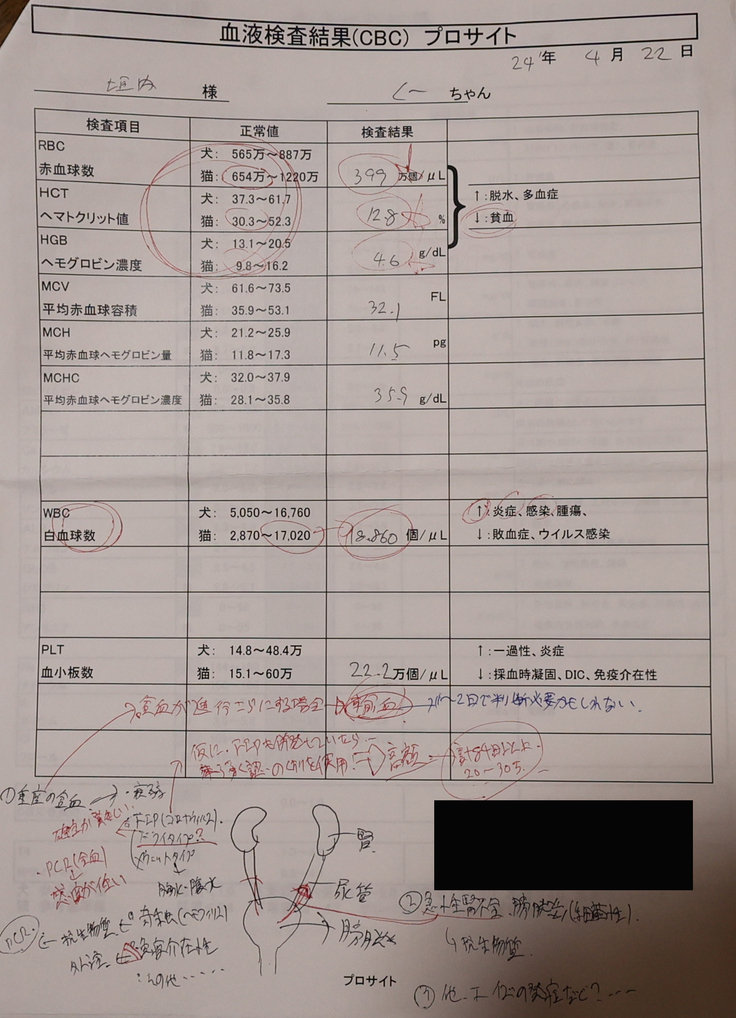 血液検査結果(CBC) プロサイト
24'年 4月 22日
様 くー ちゃん
検査項目 正常値 検査結果
RBC 犬: 565万~887万
赤血球数 猫: 654万~1220万 399 万個/μL
HCT 犬: 37.3~61.7 ↑:脱水、多血症
ヘマトクリット値 猫: 30.3~52.3 12.8 % ↓:貧血
HGB 犬: 13.1~20.5
ヘモグロビン濃度 猫: 9.8~16.2 4.6 g/dL
MCV 犬: 61.6~73.5 FL
平均赤血球容積 猫: 35.9~53.1 32.1
MCH 犬: 21.2~25.9 pg
平均赤血球ヘモグロビン量 猫: 11.8~17.3 11.5
MCHC 犬: 32.0~37.9
平均赤血球ヘモグロビン濃度 猫: 28.1~35.8 35.9 g/dL
WBC 犬: 5,050~16,760 ↑:炎症、感染、腫瘍、
白血球数 猫: 2,870~17,020 18.860 個/μL ↓:敗血症、ウイルス感染
PLT 犬: 14.8~48.4万 ↑:一過性、炎症
血小板数 猫: 15.1~60万 22.2万個/μL ↓:採血時凝固、DIC、免疫介在性
→貧血が進行 する場合 → 輸血 → 1~2日で判断必要かもしれない.
仮に、FIPを
使用. → 高額 計84日以上.
20~30万
①重度の貧血 →
FIP(コロナウイルス).
ドライタイプ?
ウェットタイプ
↓
腹水・胸水
・PCR(全血)
感度が低い
PCR. ← 抗生物質 ←
免疫介在性
その他……
腎
尿管
膀胱
②急性腎不全、膀胱炎(細菌性).
↳抗生物質
③他、
プロサイト